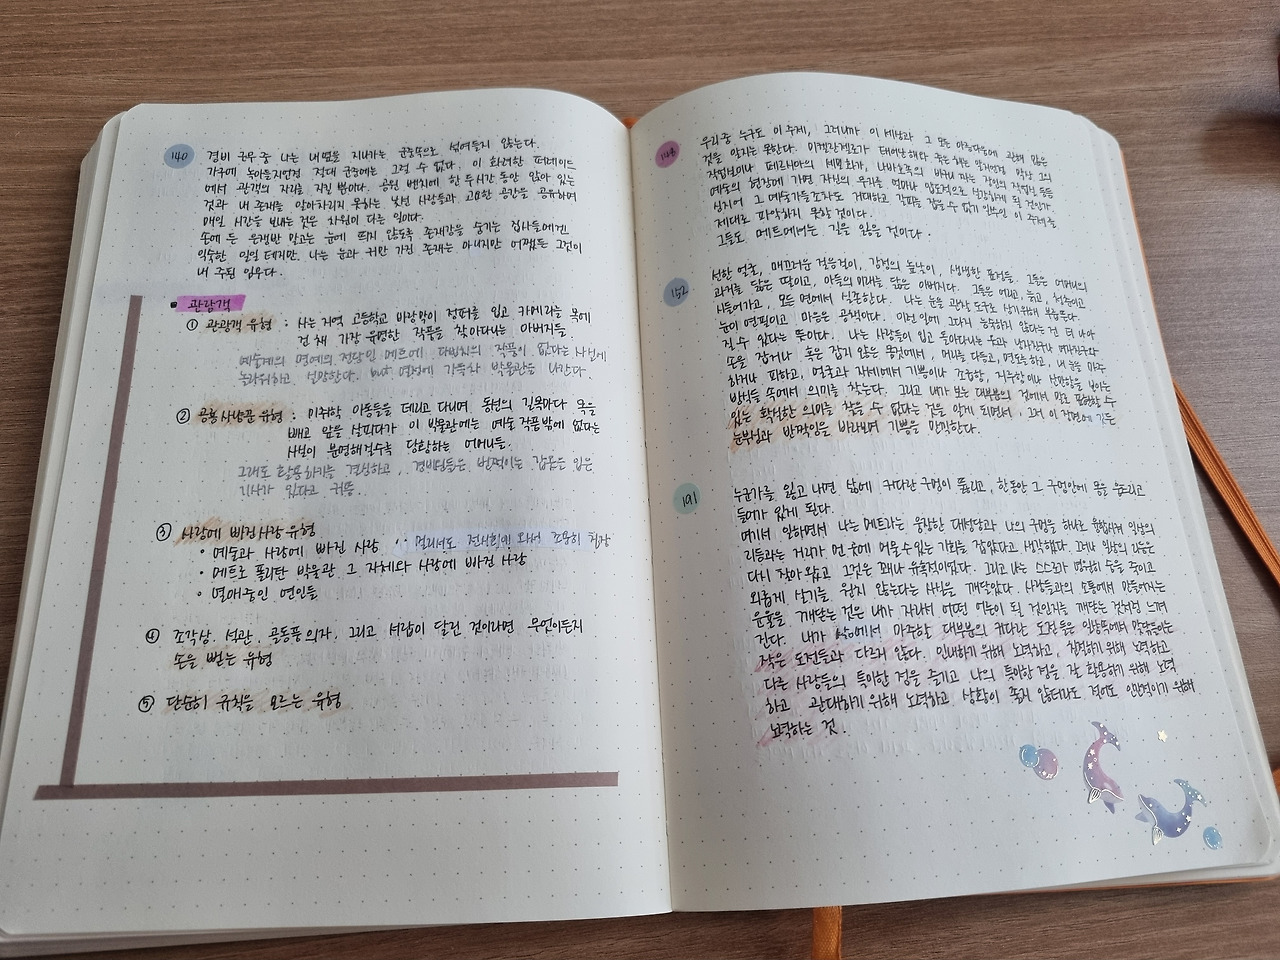 140
경비 근무 중 나는 내 옆을 지나가는 군중속으로 섞여들지 않는다.
가구에 녹아들지언정 절대 군중에는 그럴 수 없다. 이 화려한 퍼레이드
에서 관객의 자리를 지킬 뿐이다. 공원 벤치에 한 두시간 동안 앉아 있는
것과 내 존재를 알아차리지 못하는 낯선 사람들과 고요한 공간을 공유하며
매일 시간을 보내는 것은 차원이 다른 일이다.
손에 든 은쟁반 말고는 눈에 띄지 않도록 존재감을 숨기는 집사들에겐
익숙한 일일 테지만, 나는 눈과 귀만 가진 존재는 아니지만 어쨌든 그것이
내 주된 임무다.
관람객
① 관광객 유형 : 사는 지역 고등학교 마랑망이 점퍼를 입고 카메라를 목에
건 채 가장 유명한 작품을 찾아다니는 아버지들.
예술계의 명예의 전당인 메트에 다빈치의 작품이 없다는 사실에
놀라워하고, 실망한다. but 명작에 가득차 박물관은 나간다.
② 공룡사냥꾼 유형 : 미취학 아동들을 데리고 다니며 동선의 길목마다 목을
빼고 앞을 살피다가 이 박물관에는 예술 작품밖에 없다는
사실이 분명해질수록 당황하는 어머니들.
그래도 활용하기를 결심하고, 경비원들은 번쩍이는 갑옷을 입은
기사가 있다고 귀띔.
③ 사랑에 빠진사람 유형
• 예술과 사랑에 빠진 사람 멀리서도 전시회만 와서 조용히 첨잠
• 메트로 폴리탄 박물관 그 자체와 사랑에 빠진 사람
• 연애중인 연인들
④ 조각상, 석관, 골동품 의자, 그리고 서랍이 달린 것이라면 무엇이든지
손을 뻗는 유형
⑤ 단순히 규칙을 모르는 유형
148
우리중 누구도 이 주제, 그러니까 이 세상과 그 모든 아름다움에 관해 많은
것을 알지는 못한다. 미켈란젤로가 태어난 해와 죽은 해는 알지언정 막상 그의
작업실이나 페르시아의 세밀화가, 나바호족의 바구니 짜는 장인의 작업실 등등
예술의 현장에 가면 자신의 무지를 얼마나 압도적으로 실감하게 될 것인가.
심지어 그 예술가들조차도 거대하고 갈피를 잡을 수 없기 일쑤인 이 주제를
제대로 파악하지 못할 것이다.
그들도 메트에서는 길을 잃을 것이다.
152
선한 얼굴, 매끄러운 걸음걸이, 감정의 높낮이, 생생한 표정들. 그들은 어머니의
과거를 닮은 딸이고, 아들의 미래를 닮은 아버지다. 그들은 어리고, 늙고, 청춘이고
시들어가고, 모든 면에서 실존한다. 나는 눈을 관찰 도구로 삼기위해 부릅뜬다.
눈이 연필이고 마음은 공책이다. 이런 일에 그다지 능숙하지 않다는 건 더 나아
질 수 있다는 뜻이다. 나는 사람들이 입고 돌아다니는 옷과 남자친구나 여자친구와
손을 잡거나 혹은 잡지 않은 몸짓에서, 머리를 다듬고, 면도를 하고, 내 눈을 마주
하거나 피하고, 얼굴과 자세에서 기쁨이나 조급함, 지루함이나 산만함을 보이는
방식들 속에서 의미를 찾는다. 그리고 내가 보는 대부분의 것에서 말로 표현할 수
있는 확실한 의미를 찾을 수 없다는 것을 알게 되면서, 그저 이 장면에 깃든
눈부심과 반짝임을 바라보며 기쁨을 만끽한다.
191
누군가를 잃고 나면 삶에 커다란 구멍이 뚫리고, 한동안 그 구멍안에 몸을 웅크리고
들어가 있게 된다.
여기서 일하면서 나는 메트라는 웅장한 대성당과 나의 구멍을 하나로 융합시켜 일상의
리듬과는 거리가 먼 곳에 머무를 수 있는 기회를 잡았다고 생각했다. 그러나 일상의 리듬은
다시 찾아 왔고 그것은 꽤나 유혹적이었다. 그리고 나는 스스로가 영원히 숨을 죽이고
외롭게 살기를 원치 않는다는 사실을 깨달았다. 사람들과의 소통에서 만들어지는
운율을 깨닫는 것은 내가 자라서 어떤 어른이 될 것인가를 깨닫는 것처럼 느껴
진다. 내가 삶에서 마주할 대부분의 커다란 도전들은 일상속에서 맞닥뜨리는
작은 도전들과 다르지 않다. 인내하기 위해 노력하고, 친절하기 위해 노력하고
다른 사람들의 특이한 점을 즐기고 나의 특이한 점을 잘 활용하기 위해 노력
하고 관대하기 위해 노력하고 상황이 좋지 않더라도 적어도 인간적이기 위해
노력하는 것.